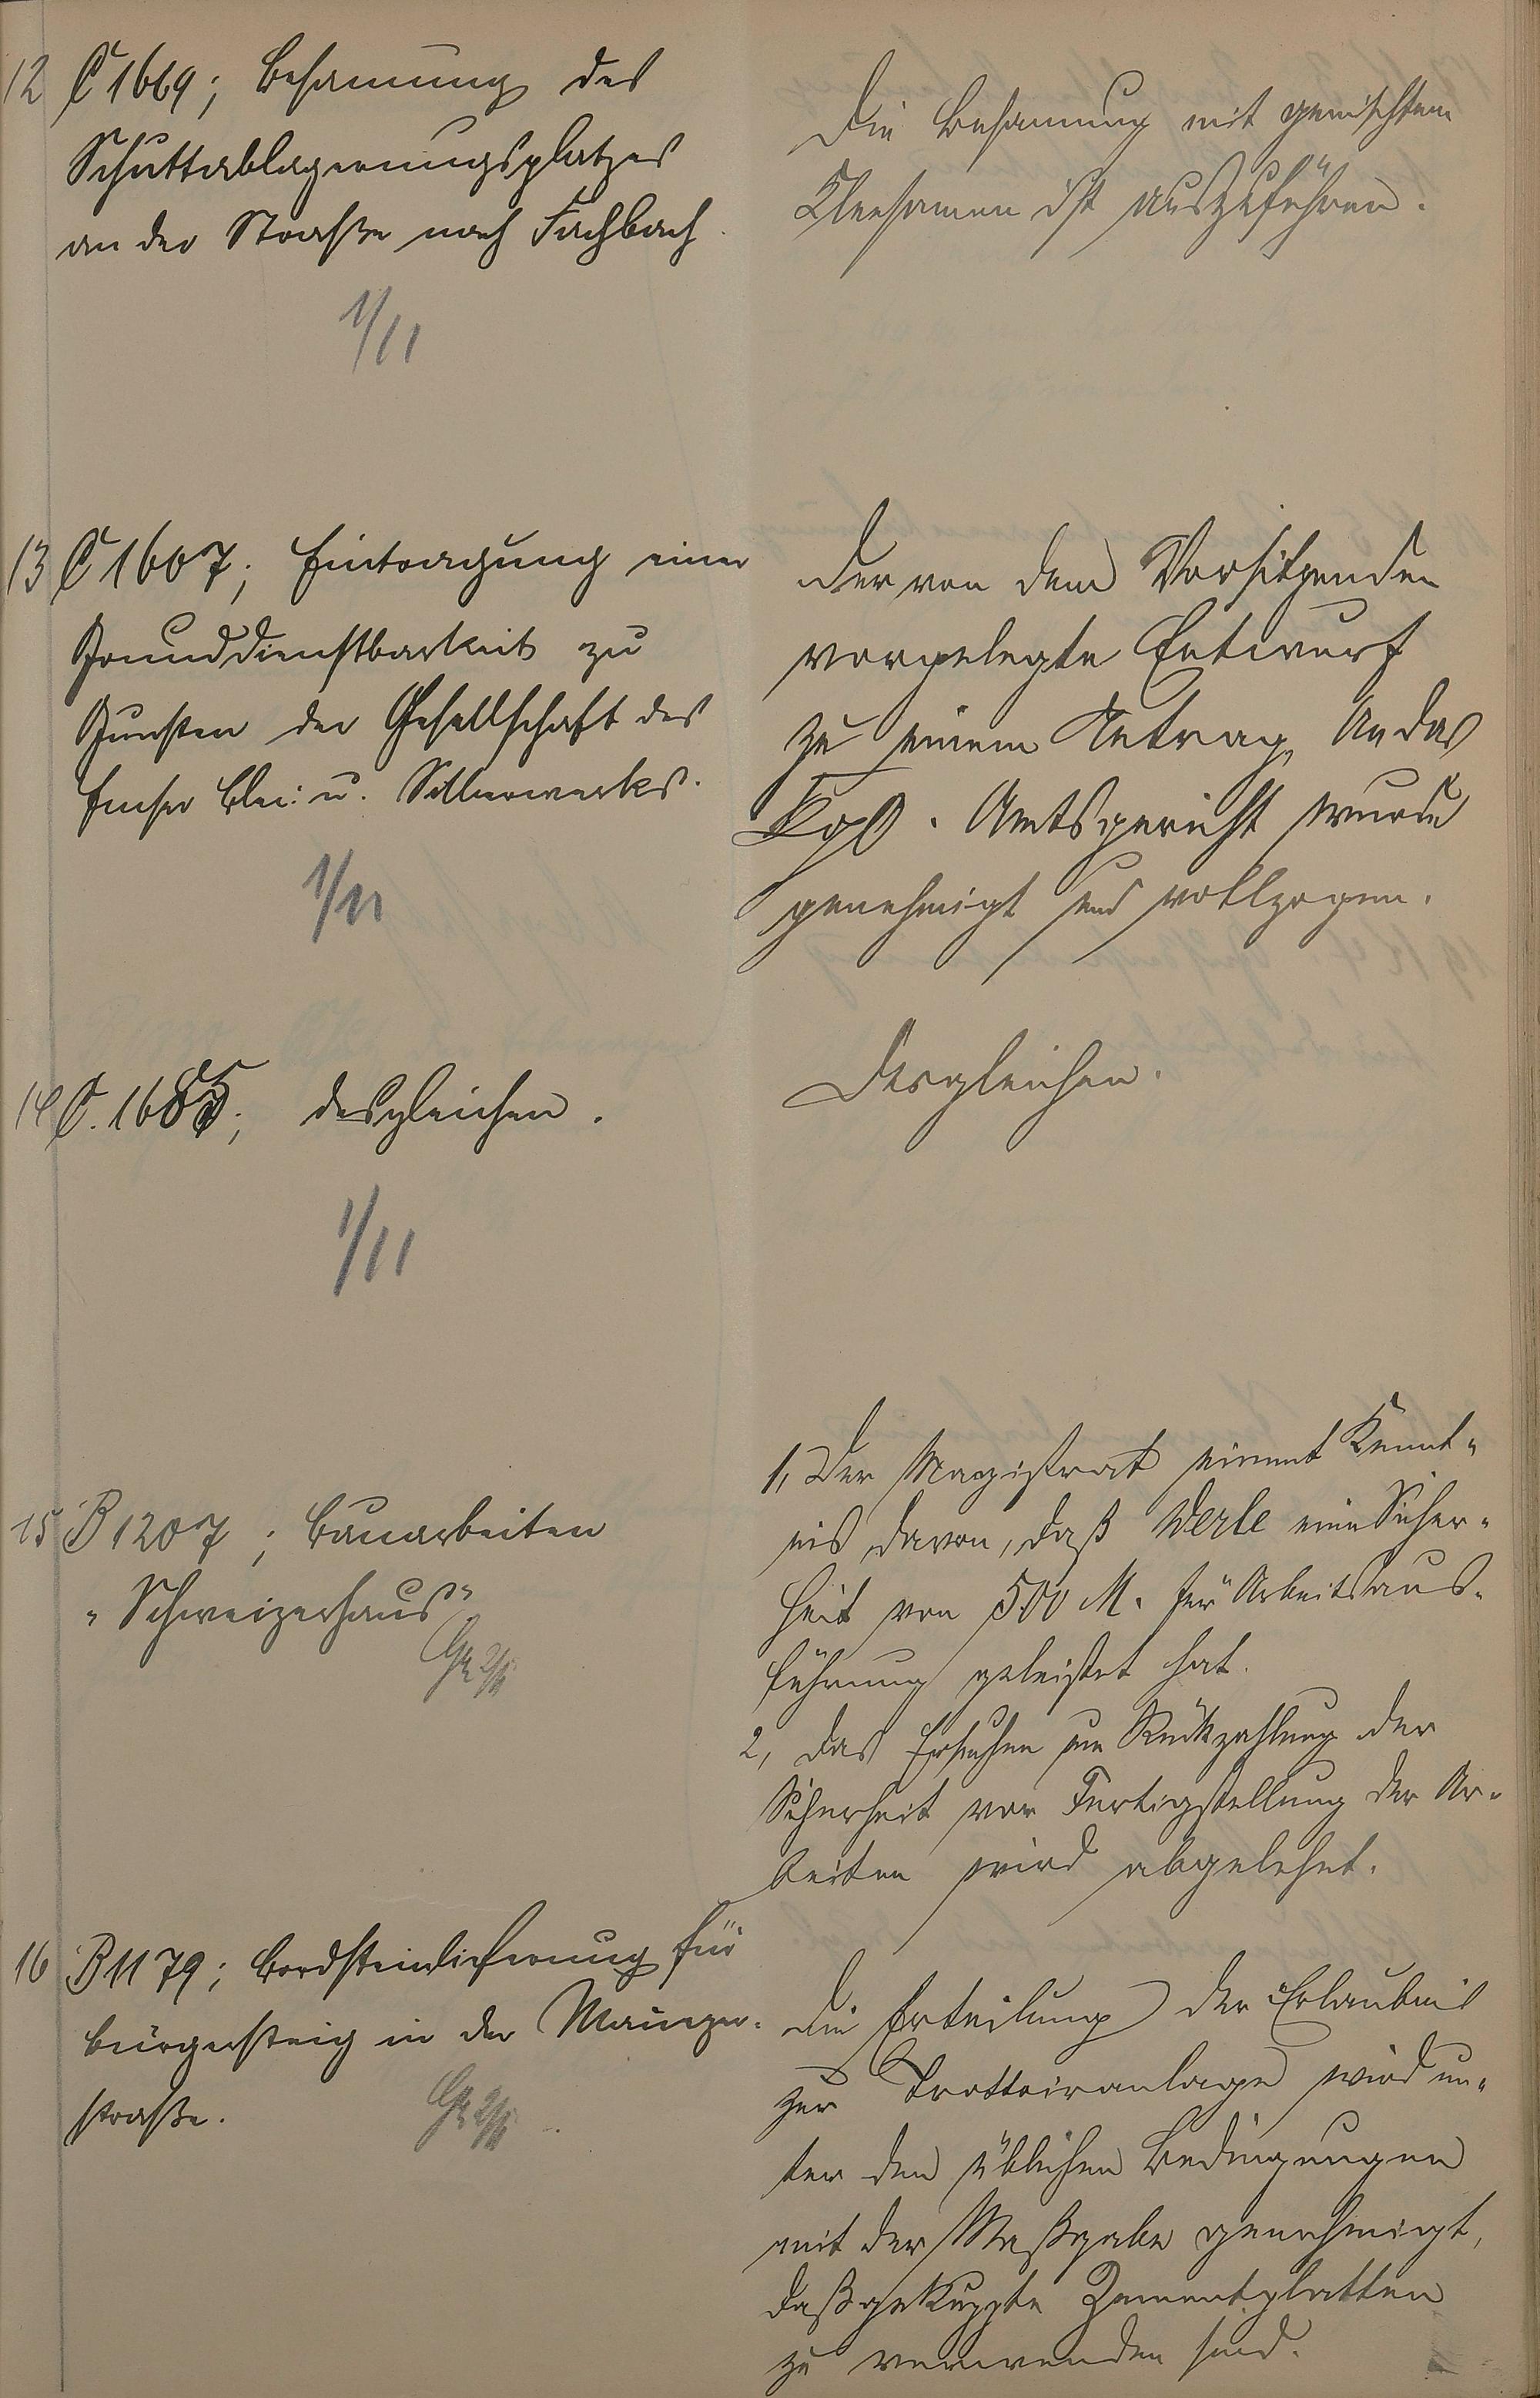 12 C 1669; Besamung des
Schuttablagerungsplatzes
an der Straße nach Fachbach
1/11
Die Besamung mit gemischtem
Kleesamen ist auszuführen.
13 C 1607; Eintragung einer
Grunddienstbarkeit zu
Gunsten der Gesellschaft des
Emser Blei- u. Silberwerks.
1/11
Der von dem Vorsitzenden
vorgelegte Entwurf
zu einem Antrag an das
Kgl. Amtsgericht wurde
genehmigt und vollzogen.
14 C. 1685; desgleichen.
1/11
Desgleichen.
15 B 1207; Bauarbeiten
"Schweizerhaus".
2/11
1, Der Magistrat nimmt Kennt-
nis davon, daß Werle eine Sicher-
heit von 500 M. für Arbeitsaus-
führung geleistet hat.
2, Das Ersuchen um Rückzahlung der
Sicherheit vor Fertigstellung der Ar-
beiten wird abgelehnt.
16 B 1179; Bordsteinlieferung für
Bürgersteig in der Mainzer-
straße.
2/11
Die Erteilung der Erlaubnis
zur Trottoiranlage wird un-
ter den üblichen Bedingungen
mit der Maßgabe genehmigt,
daß gekuppte Zementplatten
zu verwenden sind.